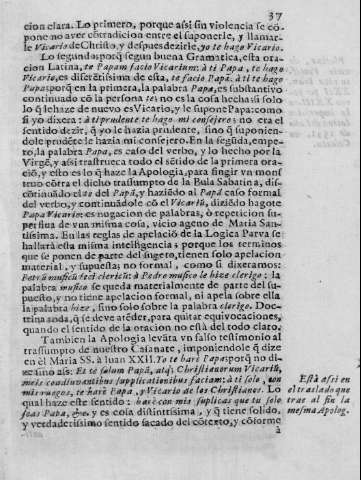 37
cion clara. Lo primero, porque assi sin violencia se cõ-
pone no aver cõtradicion entre el suponerle, y llamar-
le Vicario de Christo, y despues dezirle, yo te hago Vicario.
Lo segundo: porq̃ segun buena Gramatica, esta ora
cion Latina, te Papam facio Vicarium: à ti Papa, te hago
Vicario, es diferẽtissima de esta, te facio Papã: à ti te hago
Papa: porq̃ en la primera, la palabra Papa, es substantivo
continuado cõ la persona te: no es la cosa hecha: si solo
lo q̃ se haze de nuevo es Vicario, y le supone Papa: como
si yo dixera: à ti prudente te hago mi consejero: no era el
sentido dezir, q̃ yo le hazia prudente, sino q̃ suponien-
dole prudẽte le hazia mi consejero. En la segũda, em-
pero, la palabra Papa, es caso del verbo, y lo hecho por la
Virgẽ, y assi trastrueca todo el sẽtido de la primera ora-
ciõ, y esto es lo q̃ haze la Apologia, para fingir vn mons
truo cõtra el dicho trassumpto de la Bula Sabatina, dis-
cõtinuãdo el te del Papã, y haziẽdo al Papã caso formal
del verbo, y continuãdole cõ el Vicariũ, diziẽdo hagote
Papa Vicario: es nugacion de palabras, ò repeticion su-
perflua de vna misma cosa, vicio ageno de Maria San-
tissima. En las reglas de apelaciõ de la Logica Parva se
hallarà esta misma inteligencia; porque los terminos
que se ponen de parte del sugeto, tienen solo apelacion
material, y supuesta; no formal, como si dixeramos:
Petrũ musicũ feci clericũ: à Pedro musico le hize clerigo: la
palabra musico se queda materialmente de parte del su-
puesto, y no tiene apelacion formal, ni apela sobre ella
la palabra hize, sino solo sobre la palabra clerigo. Doc-
trina toda, q̃ se deve atẽder, para quitar equivocaciones,
quando el sentido de la oracion no està del todo claro.
Tambien la Apologia levãta vn falso testimonio al
trassumpto de nuestro Casanate, imponiendole q̃ dize
en èl Maria SS. à Iuan XXII. Yo te harè Papa: porq̃ no di-
ze sino assi: Et te solum Papã, atq; Christianorum Vicariũ,
meis coadiuvantibus supplicationibus faciam: à ti solo, con
mis ruegos, te harè Papa, y Vicario de los Christianos. Lo
qual haze este sentido: harè con mis suplicas que tu solo
seas Papa, &c. y es cosa distintissima, y q̃ tiene solido,
y verdaderissimo sentido sacado del cõtexto, y cõforme
à
Està assi en
el traslado que
trae al fin la
mesma Apolog.